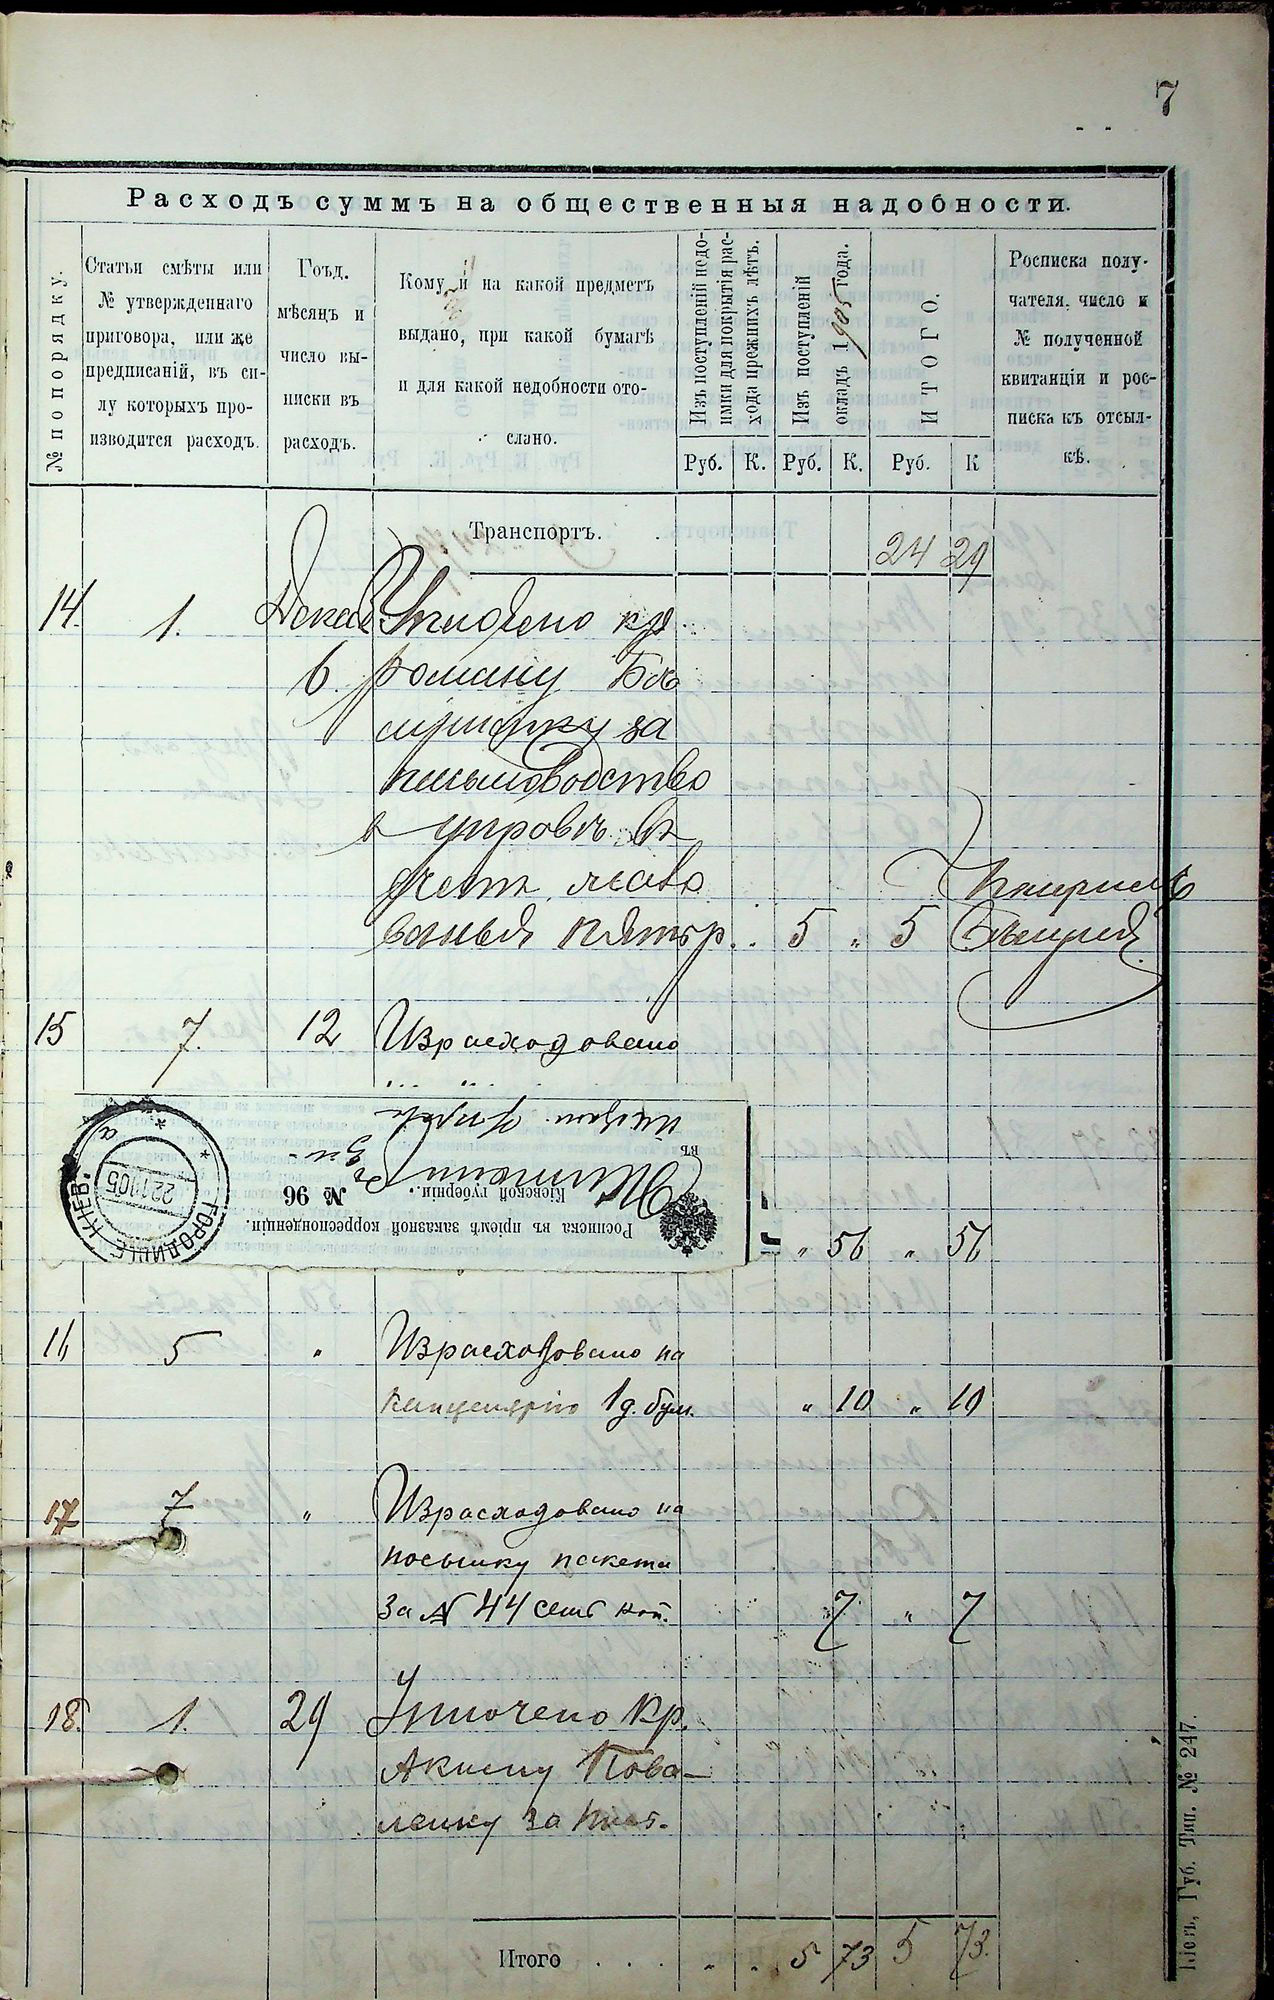 7
Расходъ суммъ на общественныя надобности.
№ по порядку.
Статьи смѣты или
№ утвержденнаго
приговора, или же
предписаній, въ си-
лу которыхъ про-
изводится расходъ.
Годъ.
мѣсяцъ и
число вы-
писки въ
расходъ.
Кому и на какой предметъ
выдано, при какой бумагѣ
и для какой надобности ото-
слано.
Изъ поступленій недо-
имки для покрытія рас-
хода прежнихъ лѣтъ.
Изъ поступленій
окладъ 1905 года.
ИТОГО.
Росписка полу-
чателя, число и
№ полученной
квитанціи и рос-
писка къ отсыл-
кѣ.
Руб. К. Руб. К. Руб. К
Транспортъ. 24 29
14. 1. Декаб. Уплочено кр
6. Роману
за
письмоводство
5 " 5
15 7. 12 Израсходовано
Росписка въ пріемѣ заказной корреспонденціи.
Кіевской губерніи. № 96
въ
ГОРОДИЩЕ КІЕВ.
22 11 05
а
" 56 " 56
16 5 " Израсходовано на
канцелярію 1 д. бум. " 10 " 10
17 7 " Израсходовано на
посылку пакета
за № 44 семь коп. " 7 " 7
18. 1. 29 Уплочено кр.
Акиму Пова-
ленку за
Итого . . . . 5 73 5 73.
Кіевъ, Губ. Тип. № 247.